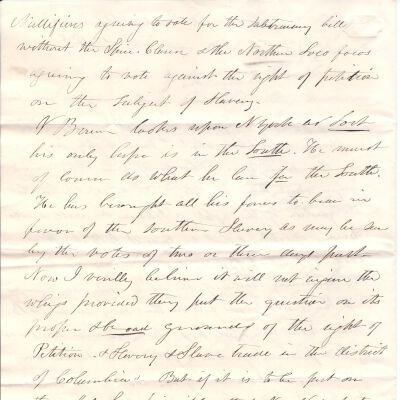 Nullifiers agreeing to vote for the Subtreasury bill
without the Specie Clause & the Northern Loco focos
agreeing to vote against the right of petition
on the subject of Slavery.
V Buren looks upon N York as lost
his only hope is in the South. He must
of course do what he can for the South.
He has brought all his forces to bear in
favor of the southern Slavery as may be seen
by the votes of two or three days past—
Now I verily believe it will not injure the
whigs provided they put the question on its
proper & broad grounds of the right of
Petition & Slavery & Slave trade in the district
of Columbia. But if it is to be put on